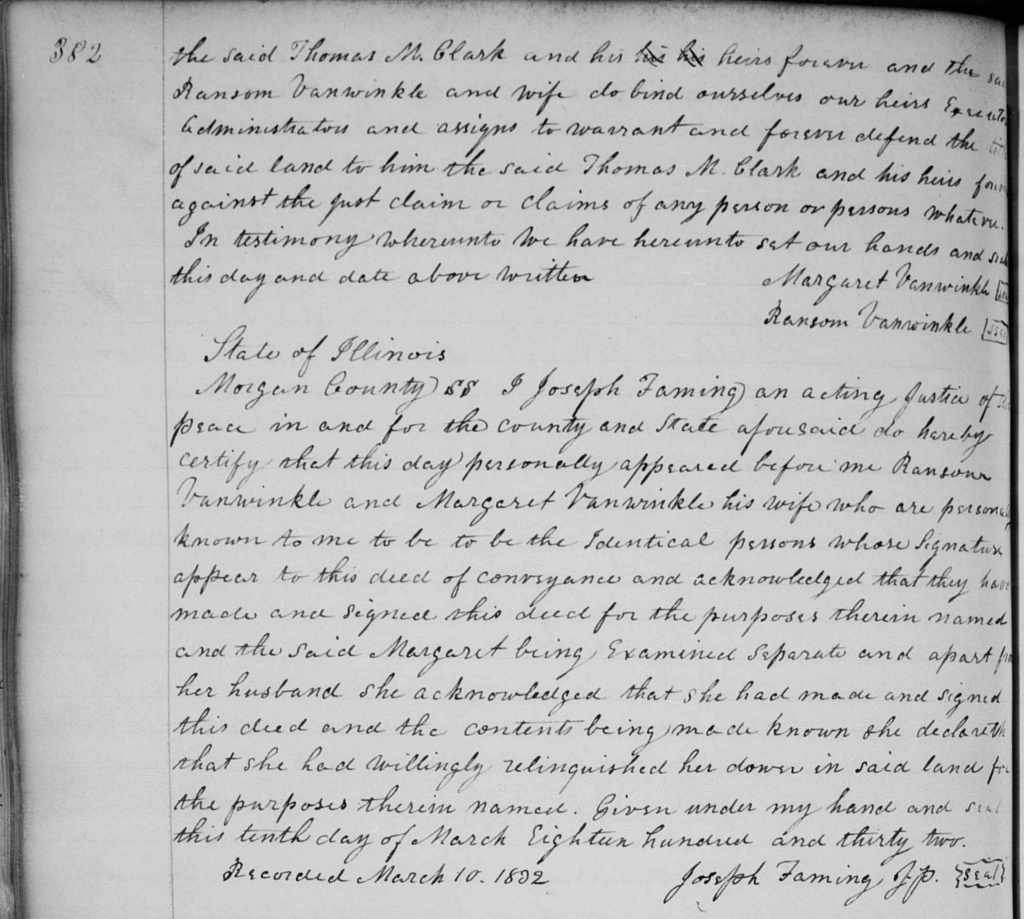 382
the said Thomas M. Clark and his his his heirs forever and the sa
Ransom Vanwinkle and wife do bind ourselves our heirs Execut
Administrators and assigns to warrant and forever defend the
of said land to him the said Thomas M. Clark and his heirs forev
against the just claim or claims of any person or persons whatever.
In testimony whereunto we have hereunto set our hands and
this day and date above written Margaret Vanwinkle
Ransom Vanwinkle
State of Illinois
Morgan County SS I Joseph Faming an acting Justice of
peace in and for the county and State aforesaid do hereby
certify that this day personally appeared before me Ransom
Vanwinkle and Margaret Vanwinkle his wife who are personal
known to me to be to be the Identical persons whose Signature
appear to this deed of conveyance and acknowledged that they have
made and signed this deed for the purposes therein named
and the said Margaret being Examined separate and apart
her husband she acknowledged that she had made and signed
this deed and the contents being made known she declareth
that she had willingly relinquished her dower in said land for
the purposes therein named. Given under my hand and seal
this tenth day of March Eighteen hundred and thirty two.
Recorded March 10. 1832 Joseph Faming J.p. {seal}